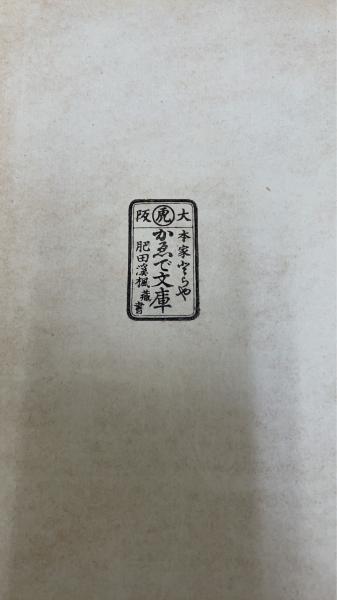 大虎阪
本家とらや
かゑで文庫
肥田渓楓蔵書